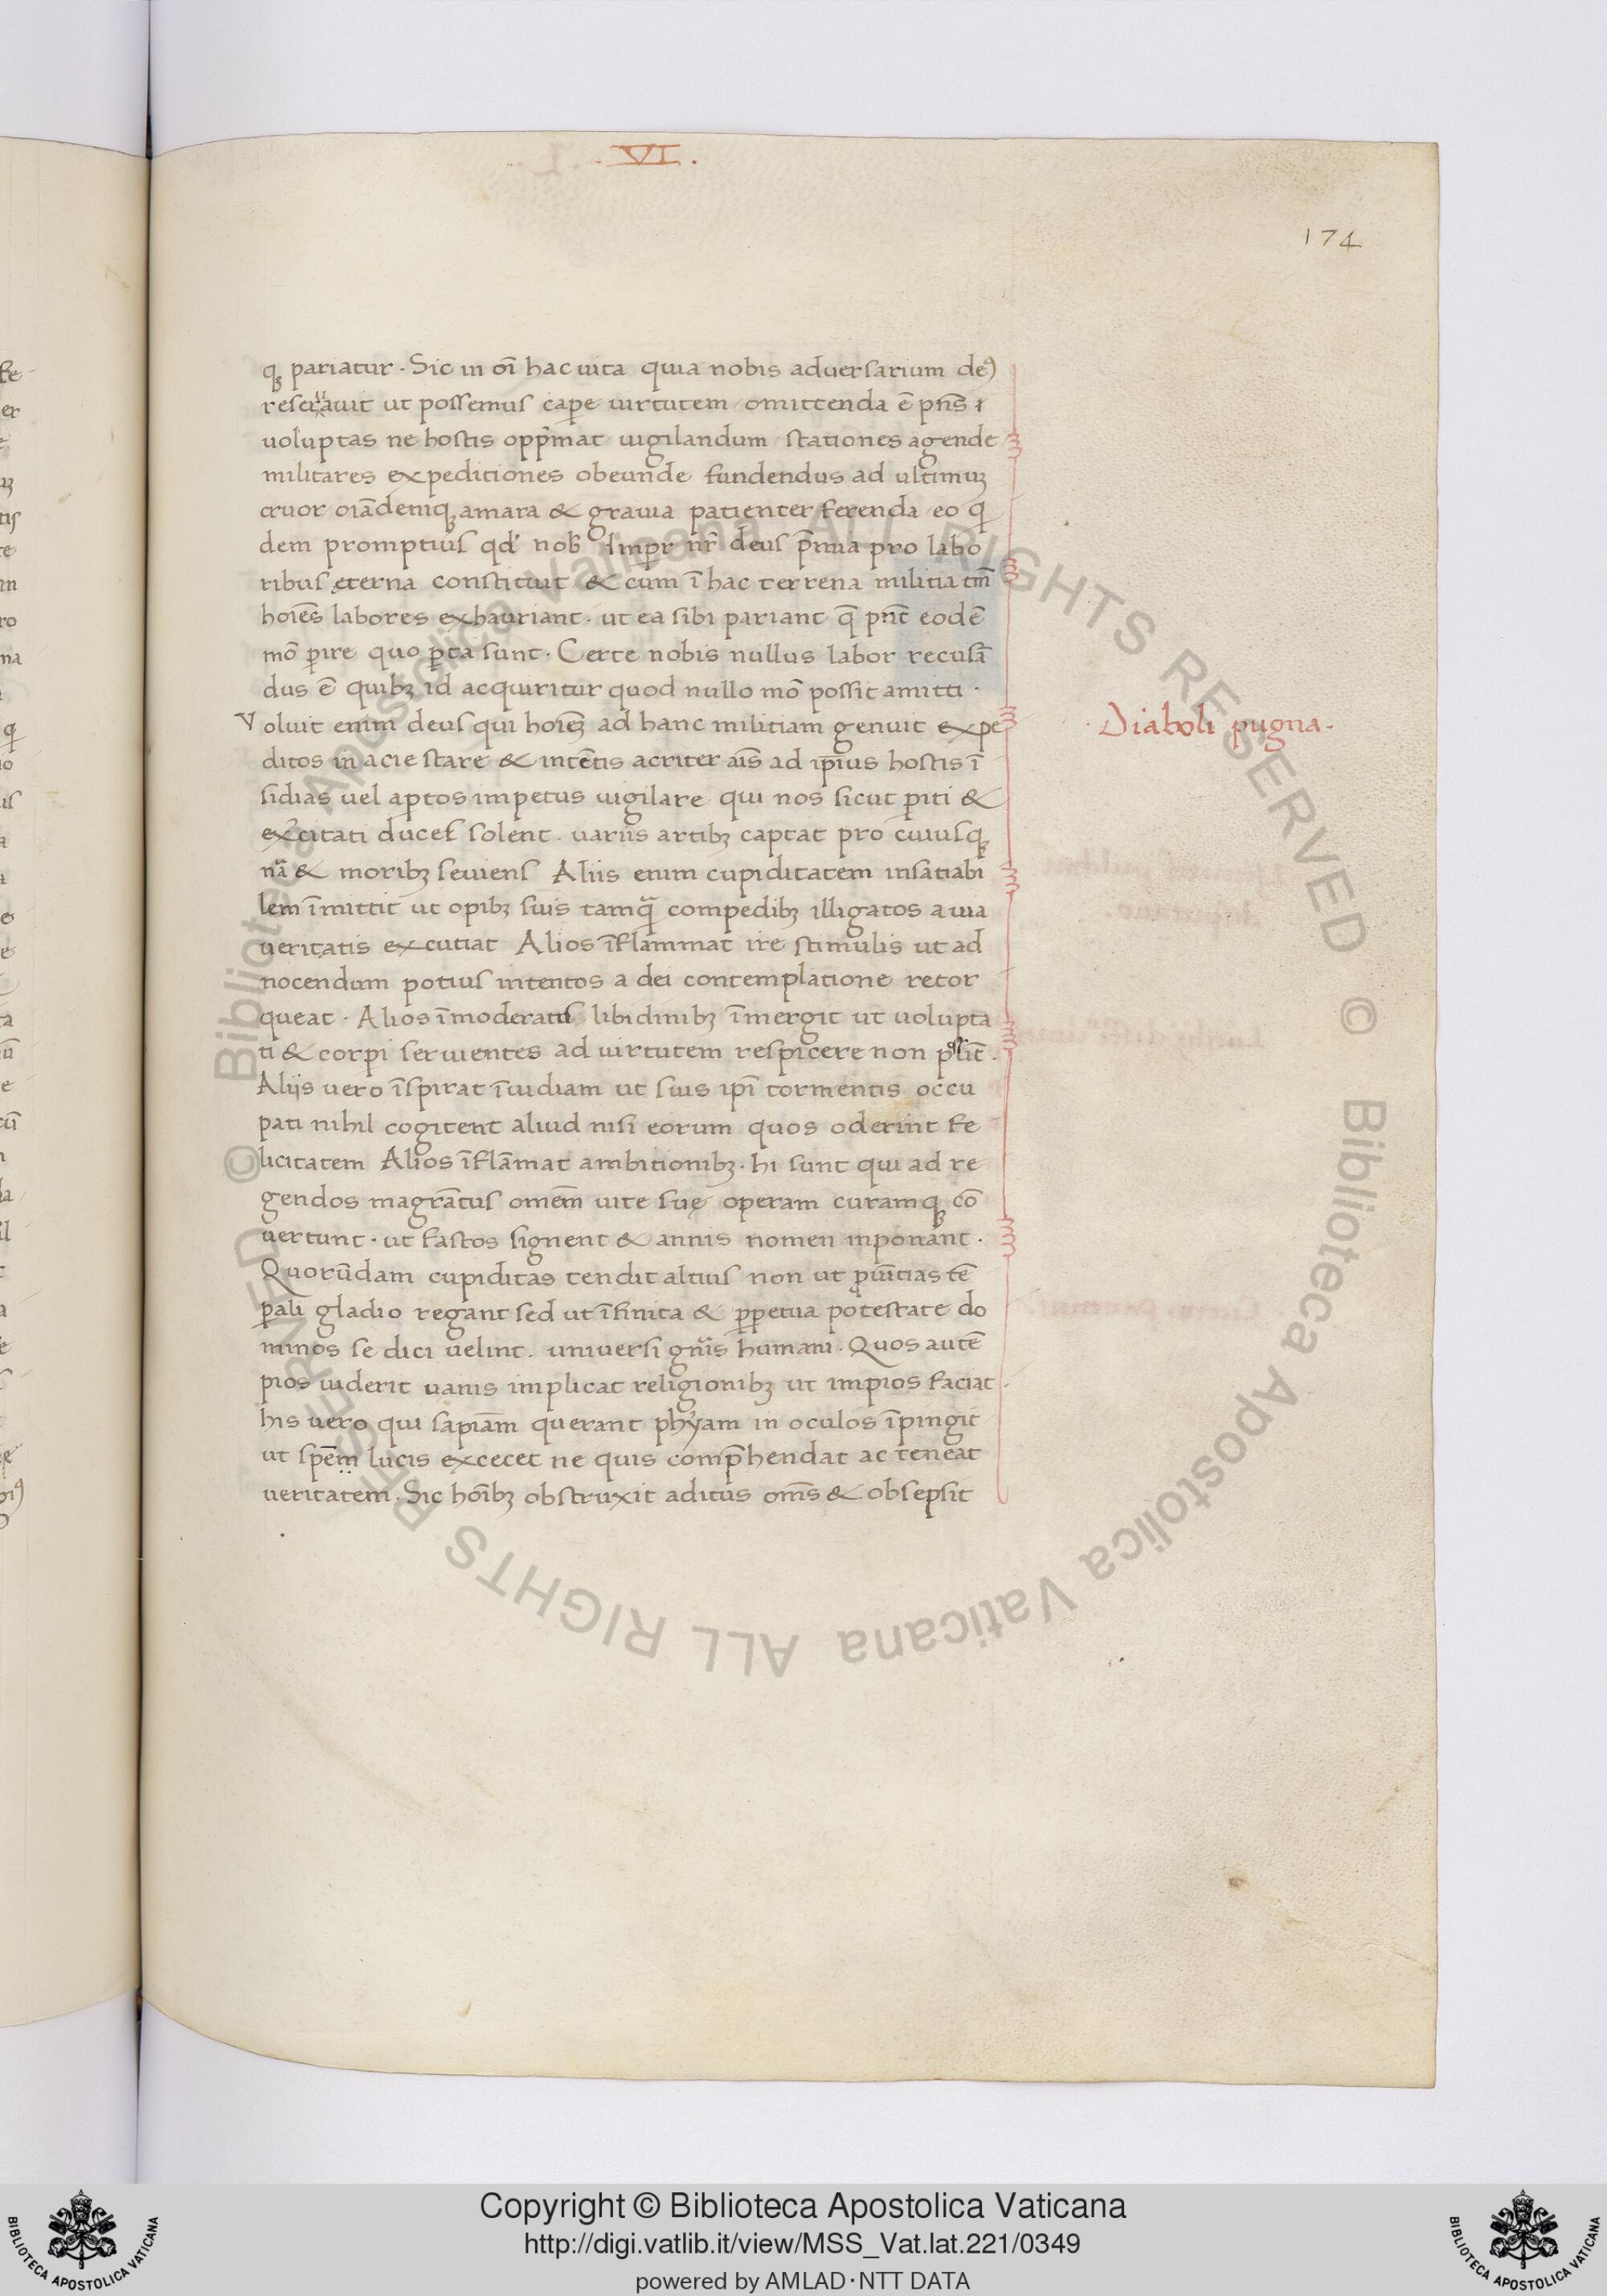 .VI.
174
qꝫ pariatur · Sic in oı̄ hac uita quia nobis aduersarium deꝰ
reseruauit ut possemus cap̄e uirtutem omittenda ē p̄ns
uoluptas ne hostis opp̄mat uigilandum stationes agende
militares expeditiones obeunde fundendus ad ultimuꝫ
cruor oīa deniqꝫ amara & grauia patienter ferenda eo q̄
dem promptius qd' nob̄ Imp̄r nr̄ deus p̄mia pro labo
ribus ęterna constituit & cum ī hac terrena militia tm̄
hoīes labores exhauriant · ut ea sibi pariant q̄ pn̄t eodē
mō ꝑire quo ꝑta sunt · Certe nobis nullus labor recusā
dus ē quibꝫ id acquiritur quod nullo mō possit amitti ·
Voluit enim deus qui hoīeꝫ ad hanc militiam genuit expe
Diaboli pugna ·
ditos in acie stare & intētis acriter aīs ad ip̄ius hostis ī
sidias uel aꝑtos impetus uigilare qui nos sicut ꝑiti &
ex̄citati duces solent · uariis artibꝫ captat pro cuiusqꝫ
nā & moribꝫ seuiens Aliis enim cupiditatem insatiabi
lem īmittit ut opibꝫ suis tamq̄ compedibꝫ illigatos a uia
ueritatis excutiat Alios īflammat ire stimulis ut ad
nocendum potius intentos a dei contemplatione retor
queat · Alios īmoderatis libidinibꝫ īmergit ut uolupta
ti & corpi seruientes ad uirtutem respicere non
Aliis uero īspirat īuidiam ut suis ipī tormentis occu
pati nihil cogitent aliud nisi eorum quos oderint fe
licitatem Alios īflāmat ambitionibꝫ · hi sunt qui ad re
gendos magr̄atus omem̄ uite suę operam curamqꝫ cō
uertunt · ut fastos signent & annis nomen inponant ·
Quorūdam cupiditas tendit altius non ut ꝓuītias tē
ꝑali gladio regant sed ut īfinita & ꝑpetua potestate do
minos se dici uelint · uniuersi gn̄is humani · Quos autē
pios uiderit uanis implicat religionibꝫ ut impios faciat ·
his uero qui sapīam querant phyam in oculos īpingit
ut spēm lucis excecet ne quis comp̄hendat ac teneat
ueritatem · Sic hoībꝫ obstruxit aditus oms̄ & obsepsit
© Biblioteca Apostolica Vaticana ALL RIGHTS RESERVED © Biblioteca Apostolica Vaticana ALL RIGHTS RESERVED
BIBLIOTECA APOSTOLICA VATICANA
Copyright © Biblioteca Apostolica Vaticana
http://digi.vatlib.it/view/MSS_Vat.lat.221/0349
powered by AMLAD·NTT DATA
BIBLIOTECA APOSTOLICA VATICANA